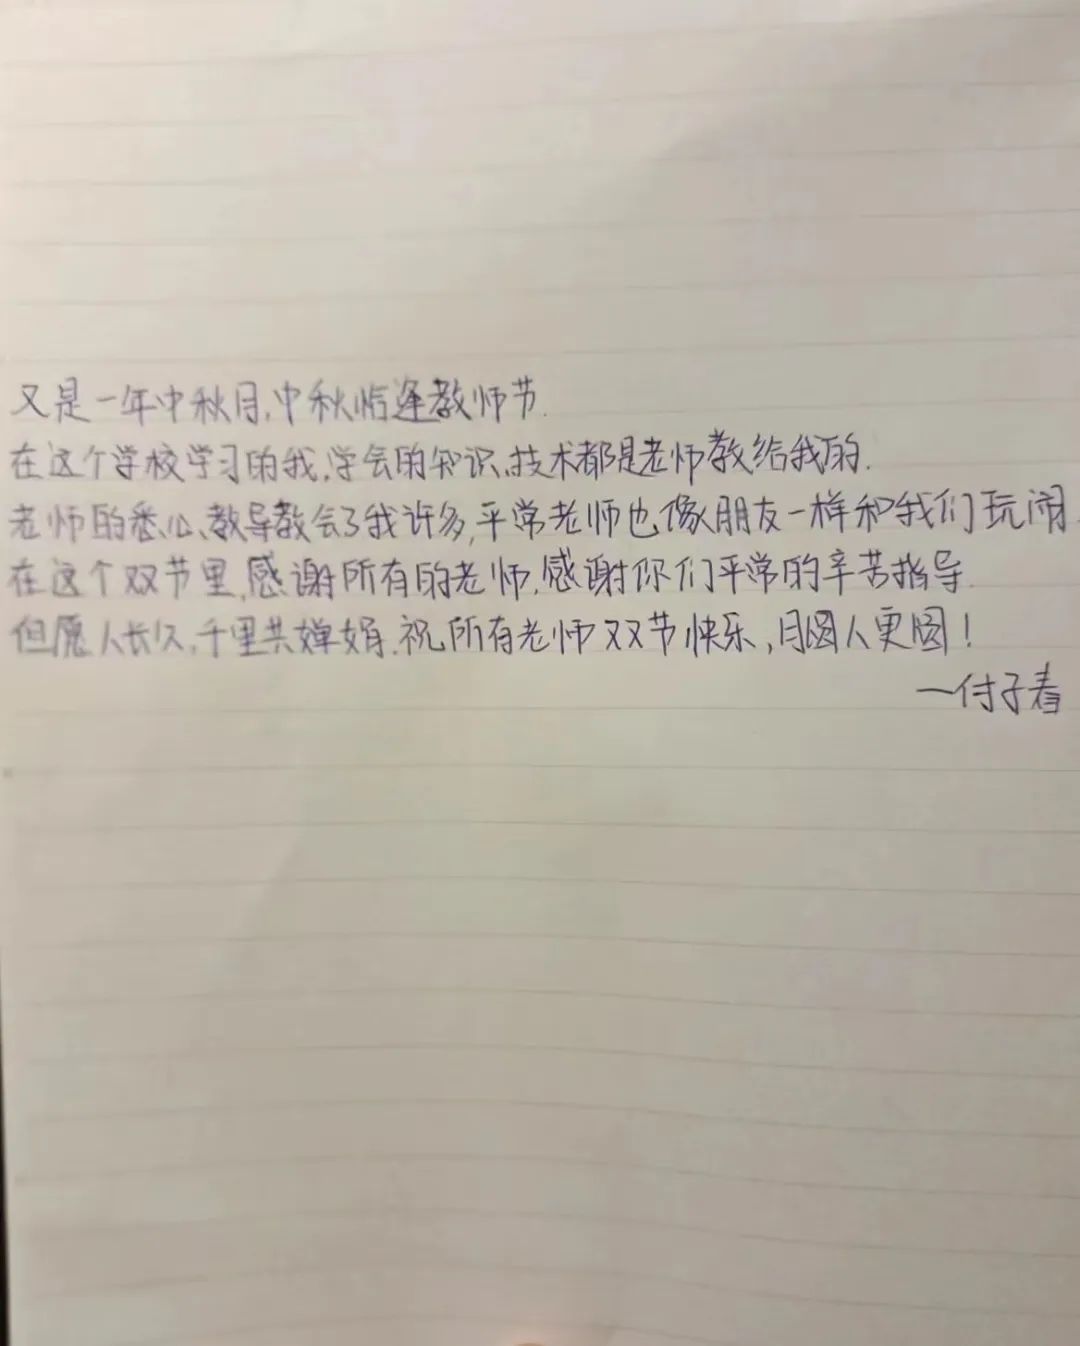 又是一年中秋月,中秋恰逢教师节.
在这个学校学习的我,学会的知识、技术都是老师教给我的.
老师的悉心、教导教会了我许多,平常老师也像朋友一样和我们玩闹.
在这个双节里,感谢所有的老师,感谢你们平常的辛苦指导.
但愿人长久,千里共婵娟.祝所有老师双节快乐,月圆人更圆!
—付子春